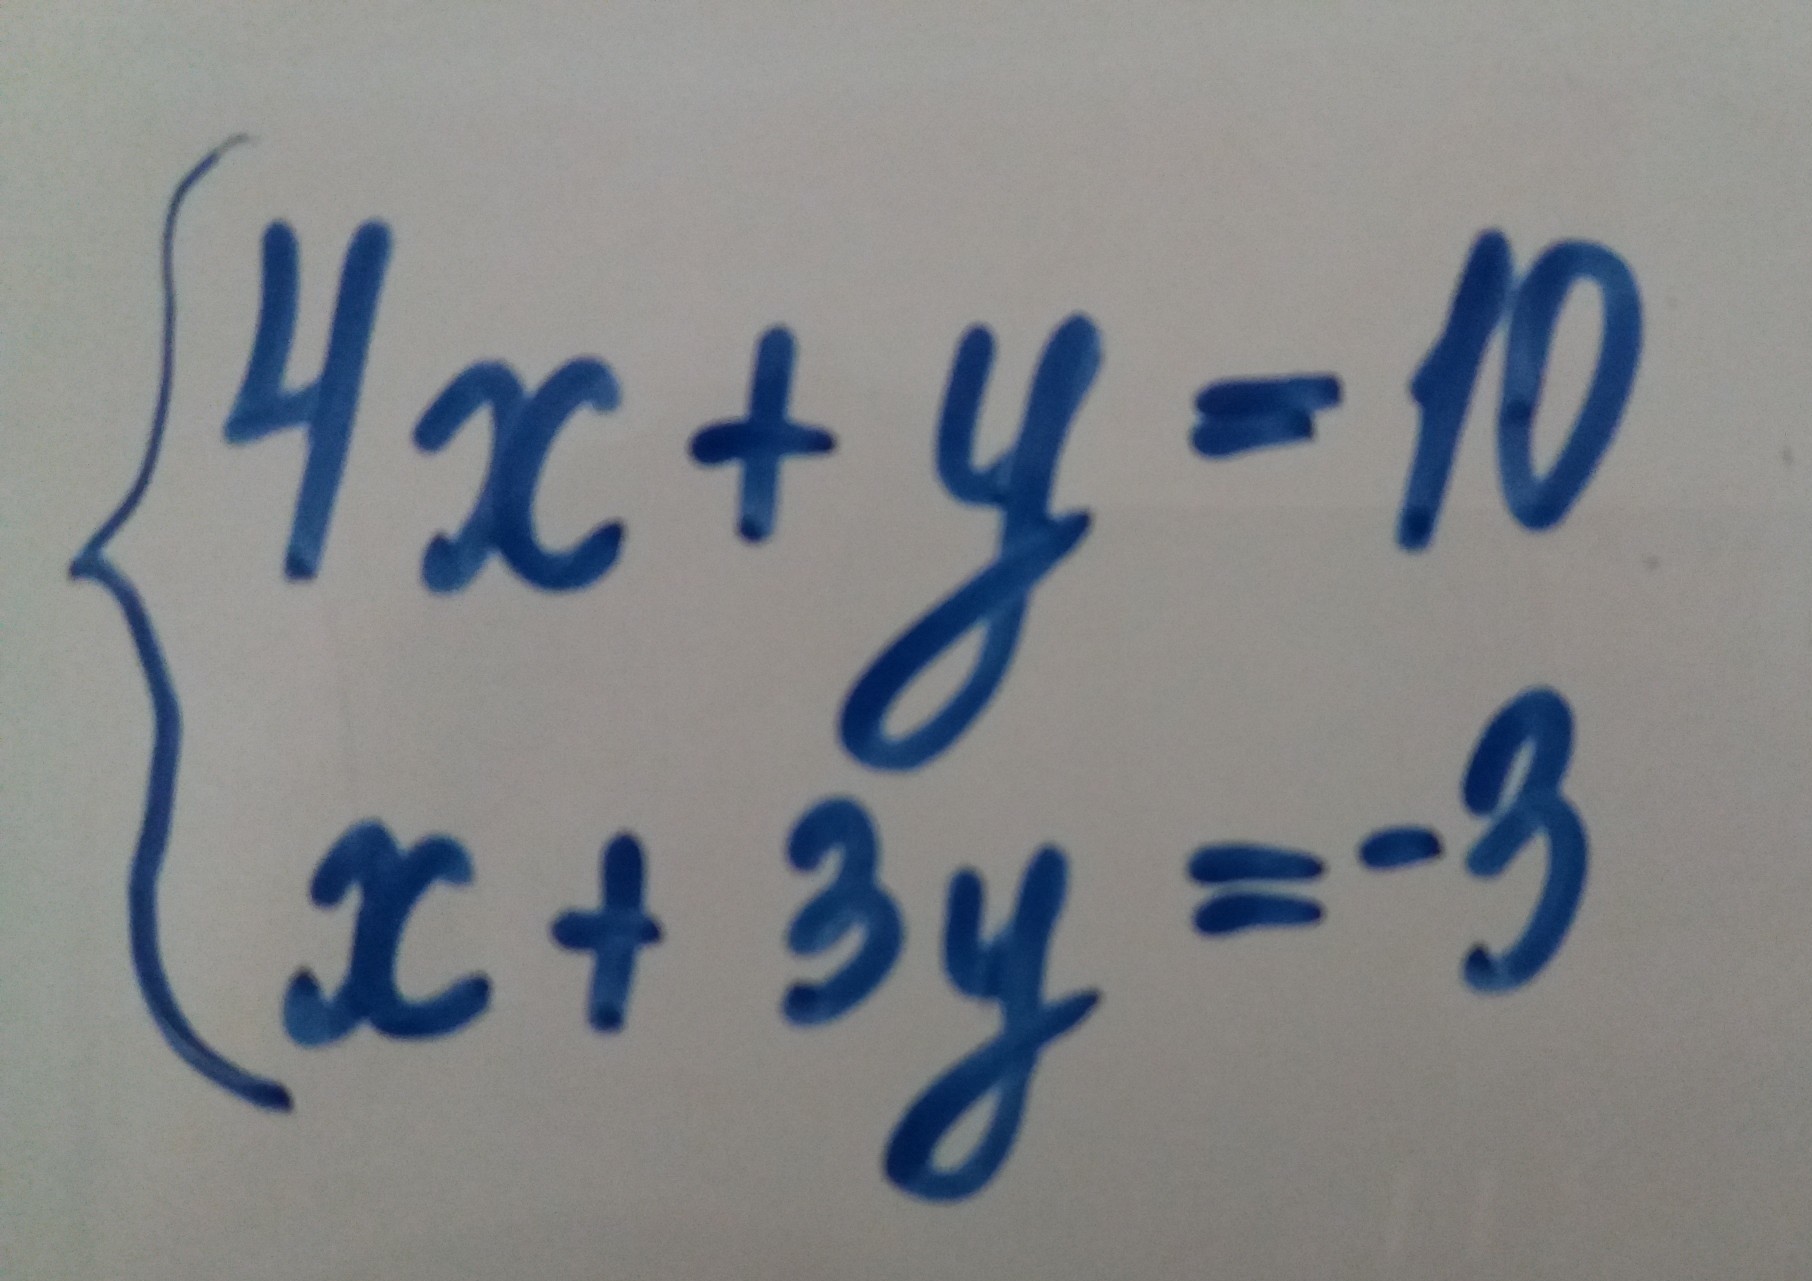 4x + y = 10
x + 3y = -3